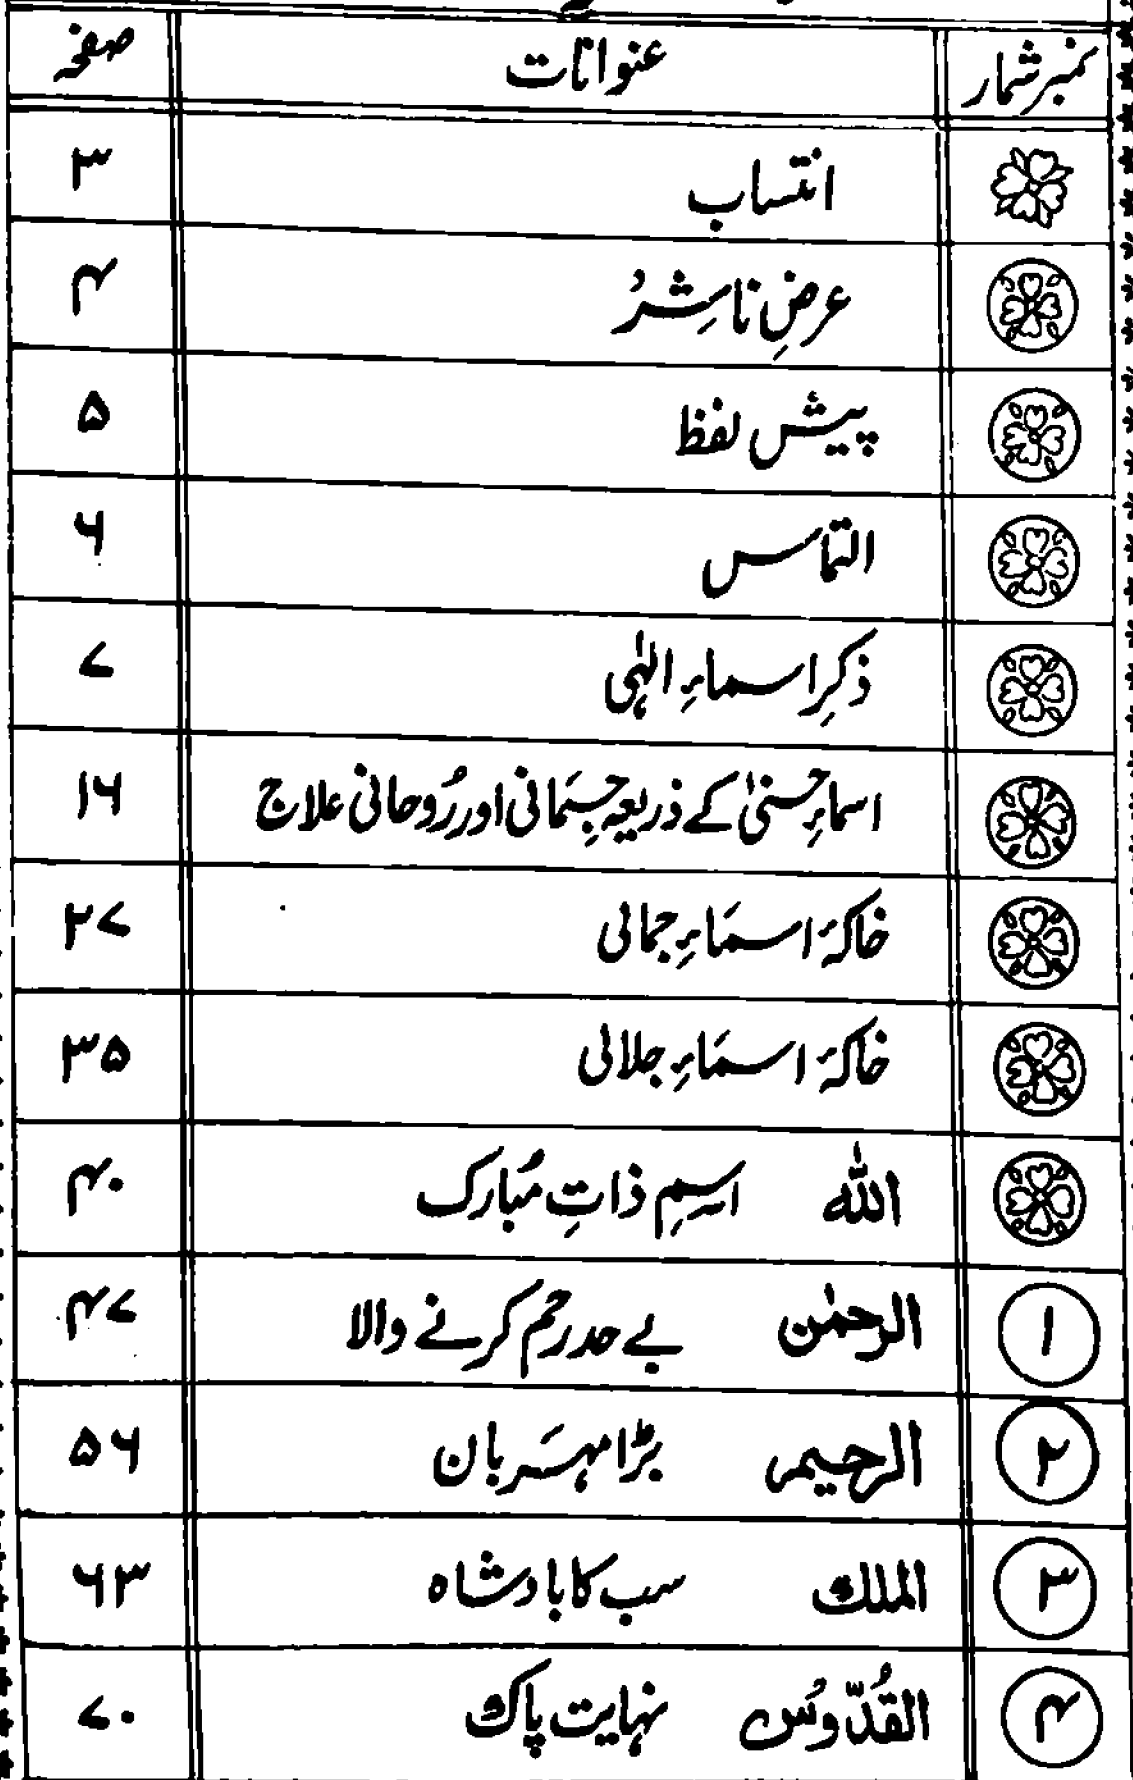 نمبر شمار عنوانات صفحہ
انتساب ۳
عرضِ ناشِرُ ۴
پیش لفظ ۵
التماس ۶
ذکرِ اسماءِ الہٰی ۷
اسماءِ حسنیٰ کے ذریعہ جِسَمانی اور رُوحانی علاج ۱۶
خاکۂ اسمَاءِ جمالی ۲۷
خاکۂ اسمَاءِ جلالی ۳۵
اللہ اسمِ ذاتِ مُبارک ۴۰
۱ الرحمٰن بے حد رحم کرنے والا ۴۷
۲ الرحیم بڑا مہَربان ۵۶
۳ الملك سب کا بادشاہ ۶۳
۴ القُدّوُس نہایت پاک ۷۰